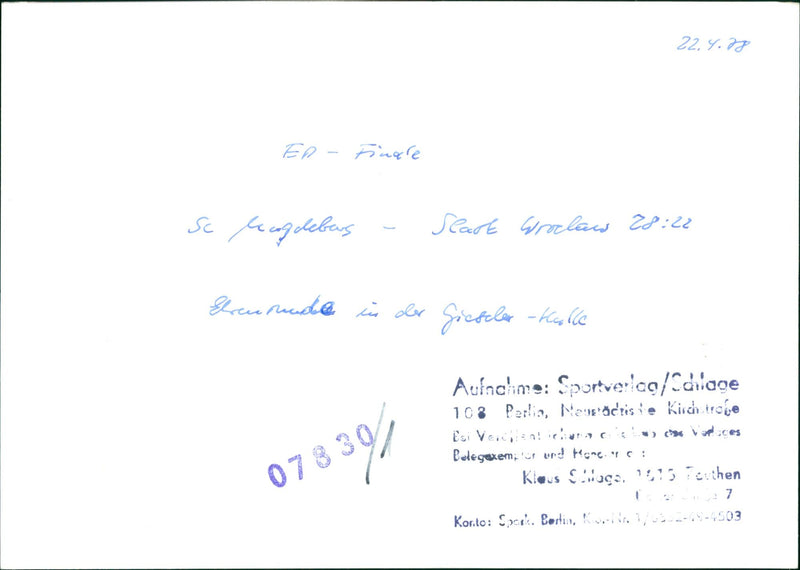 22.4.78
EP - Finale
SC Magdeburg - Slask Wroclaw 28:22
Ehrenrunde in der Gieseler-Halle
Aufnahme: Sportverlag/Schlage
108 Berlin, Neustädtische Kirchstraße
Bei Veröffentlichung des Verlages
Belegexemplar und Honorar
07830/1
Klaus Schlage, 1615 Zeuthen
7
Konto: Spark. Berlin,